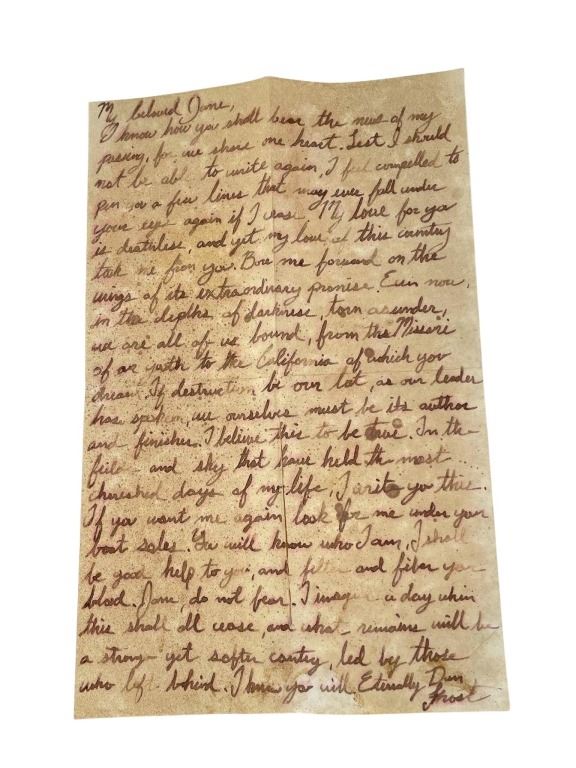 My beloved Jane,
I know how you shall bear the news of my
passing, for we share one heart. Lest I should
not be able to write again, I feel compelled to
pen you a few lines that may ever fall under
your eye again if I cease. My love for you
is deathless, and yet my love of this country
took me from you. Bore me forward on the
wings of its extraordinary promise. Even now,
in the depths of darkness, torn asunder,
we are all of us bound, from the Missouri
of our youth to the California of which you
dream. If destruction be our lot, as our leader
has spoken, we ourselves must be its author
and finisher. I believe this to be true. In the
fields and sky that have held the most
cherished days of my life, I write you this.
If you want me again look for me under your
boot soles. You will know who I am, I shall
be good help to you, and filter and fiber your
blood. Jane, do not fear. I imagine a day when
this shall all cease, and what remains will be
a stronger yet softer country, led by those
who left behind. I know you will. Eternally
Frost